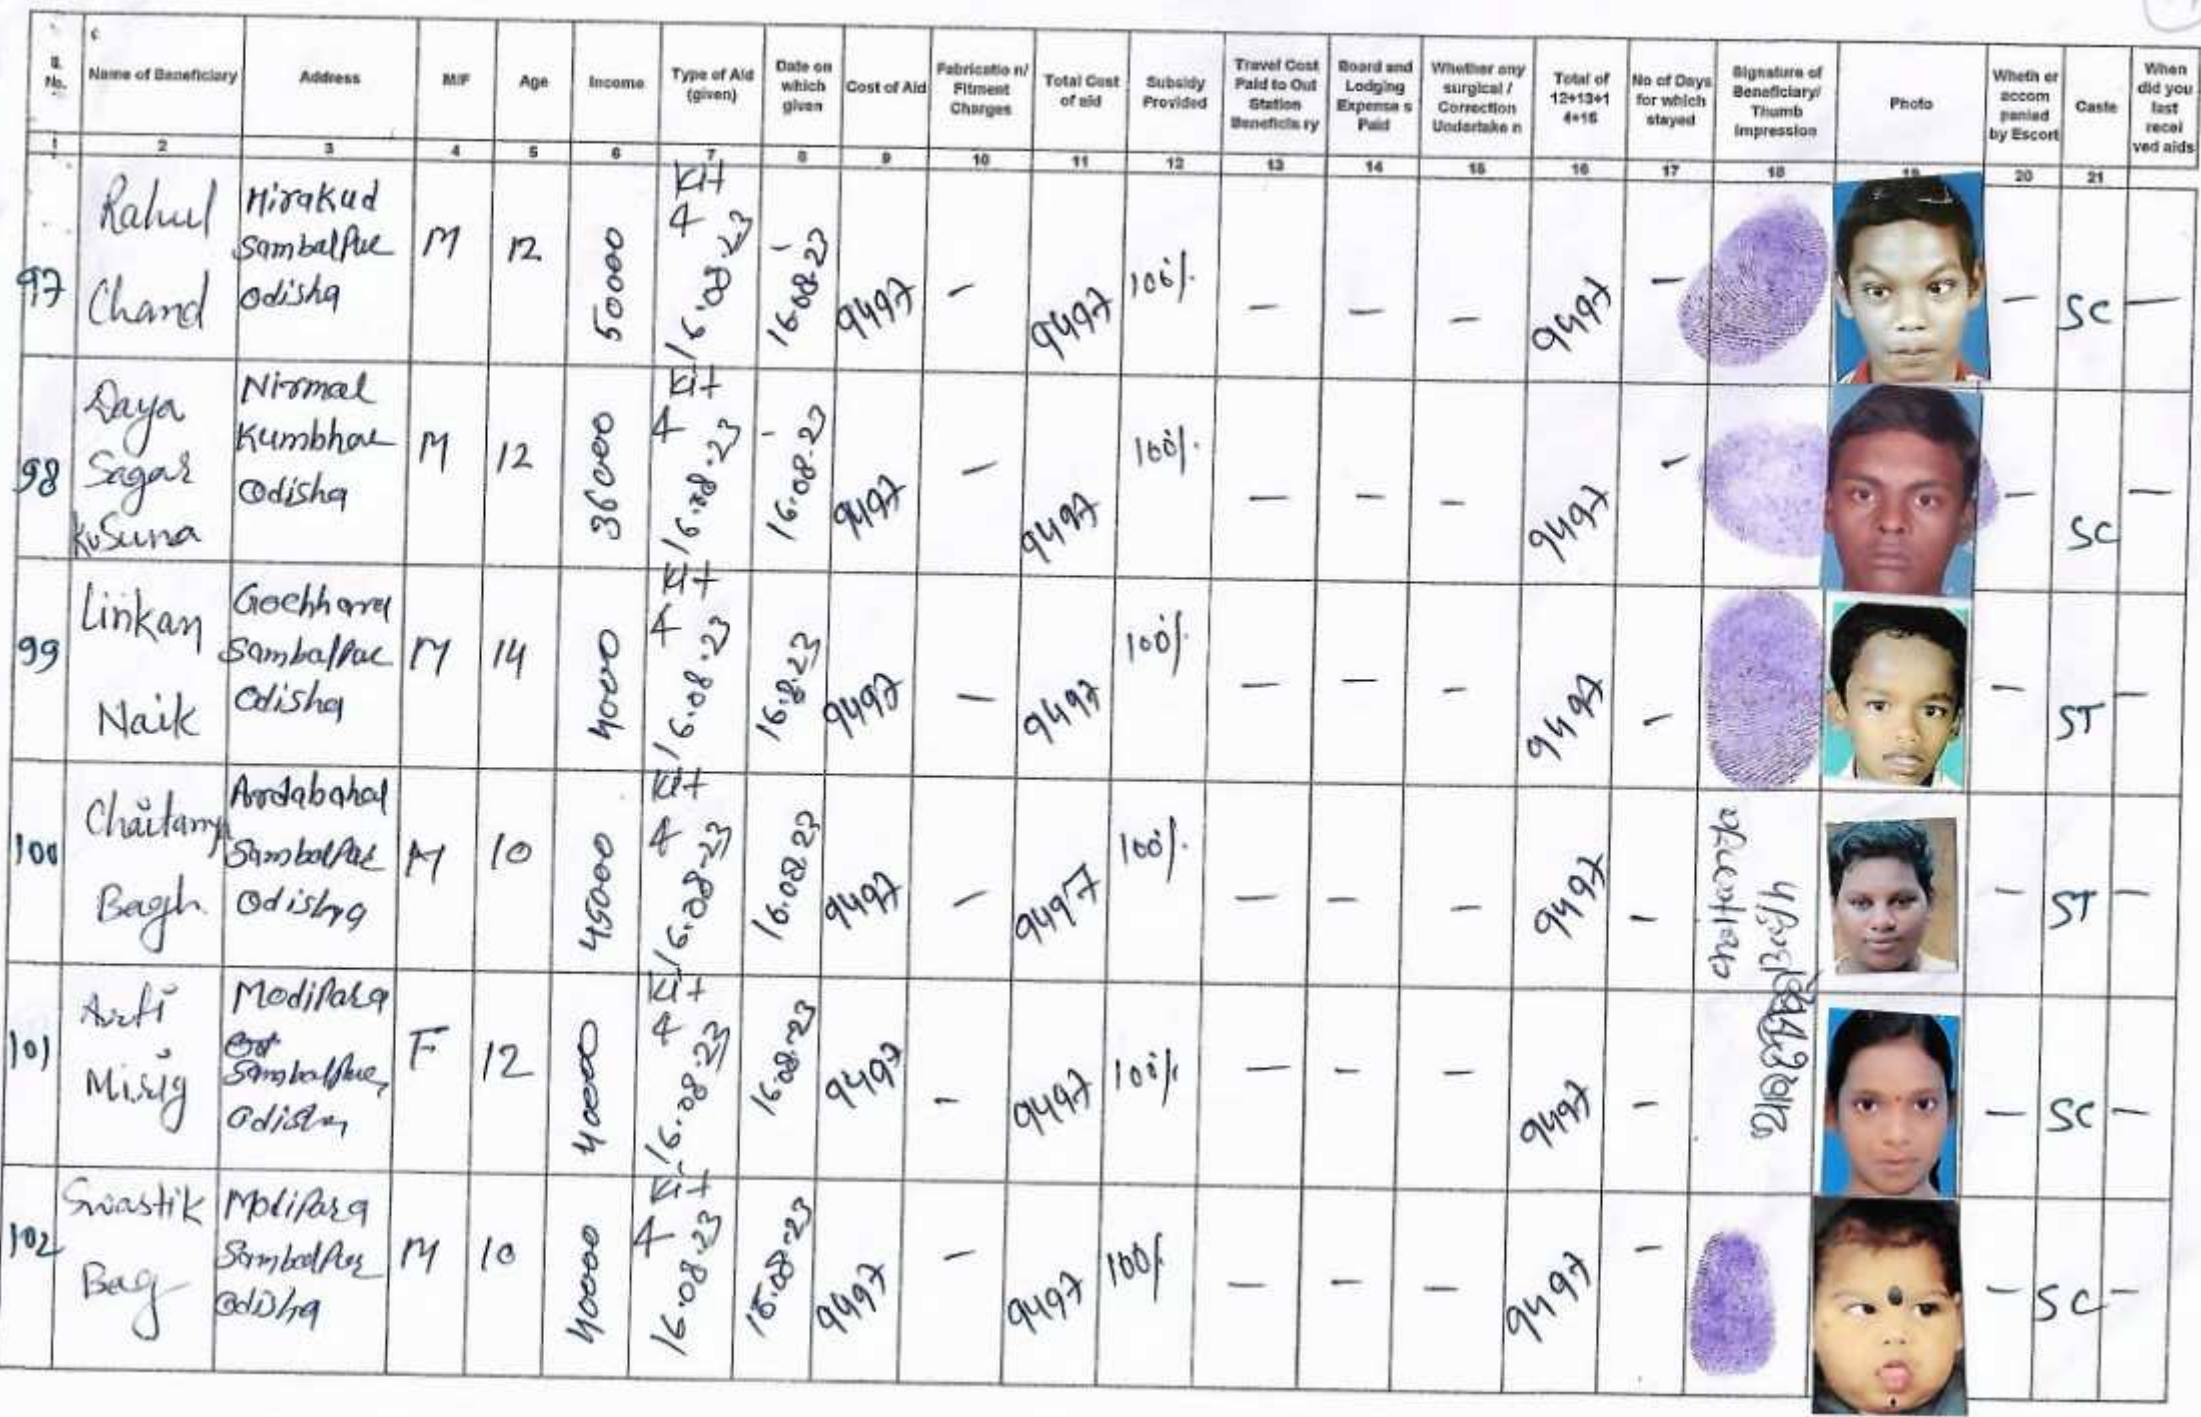 Sl. No. Name of Beneficiary Address M/F Age Income Type of Aid (given) Date on which given Cost of Aid Fabricatio n/ Fitment Charges Total Cost of aid Subsidy Provided Travel Cost Paid to Out Station Beneficia ry Board and Lodging Expense s Paid Whether any surgical / Correction Undertake n Total of 12+13+1 4+15 No of Days for which stayed Signature of Beneficiary/ Thumb Impression Photo Wheth er accom panied by Escort Caste When did you last recei ved aids
1 2 3 4 5 6 7 8 9 10 11 12 13 14 15 16 17 18 19 20 21
97 Rahul Chand Hirakud Sambalpur Odisha M 12 50000 Kit 4 16.08.23 16.08.23 9497 - 9497 100% - - - 9497 - - SC -
98 Daya Sagar Kusuna Nirmal Kumbhar Odisha M 12 36000 Kit 4 16.08.23 16.08.23 9497 - 9497 100% - - - 9497 - - SC -
99 Linkan Naik Sambalpur Odisha M 14 Kit 4 16.08.23 16.8.23 9497 - 9497 100% - - - 9497 - - ST -
100 Bagh Sambalpur Odisha M 10 45000 Kit 4 16.08.23 16.08.23 9497 - 9497 100% - - - 9497 - - ST -
101 Modipara Sambalpur, Odisha F 12 40000 Kit 4 16.08.23 16.08.23 9497 - 9497 100% - - - 9497 - - SC -
102 Swastik Bag Modipara Sambalpur Odisha M 10 40000 Kit 4 16.08.23 16.08.23 9497 - 9497 100% - - - 9497 - - SC -